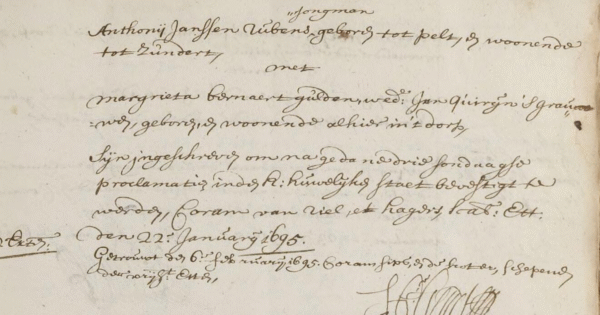 Jongman
Anthonij Janssen Rubens geboren tot pelt, en woonende
tot Zundert,
met
margrieta bernaert gulden, wede. Jan Quirijn 'S Grau
-wen, geboren, en woonende alhier in't dorp,
Sijn ingeschreven om na gedane drie sondaagse
proclamatien inde H: huwelijke staet bevestigt te
werden, Coram van riel, et hagers, scab: Ett:
den 22: Januarij 1695.
Getrouwt den 6: februarij 1695. Coram en de schepenen
der Etten,